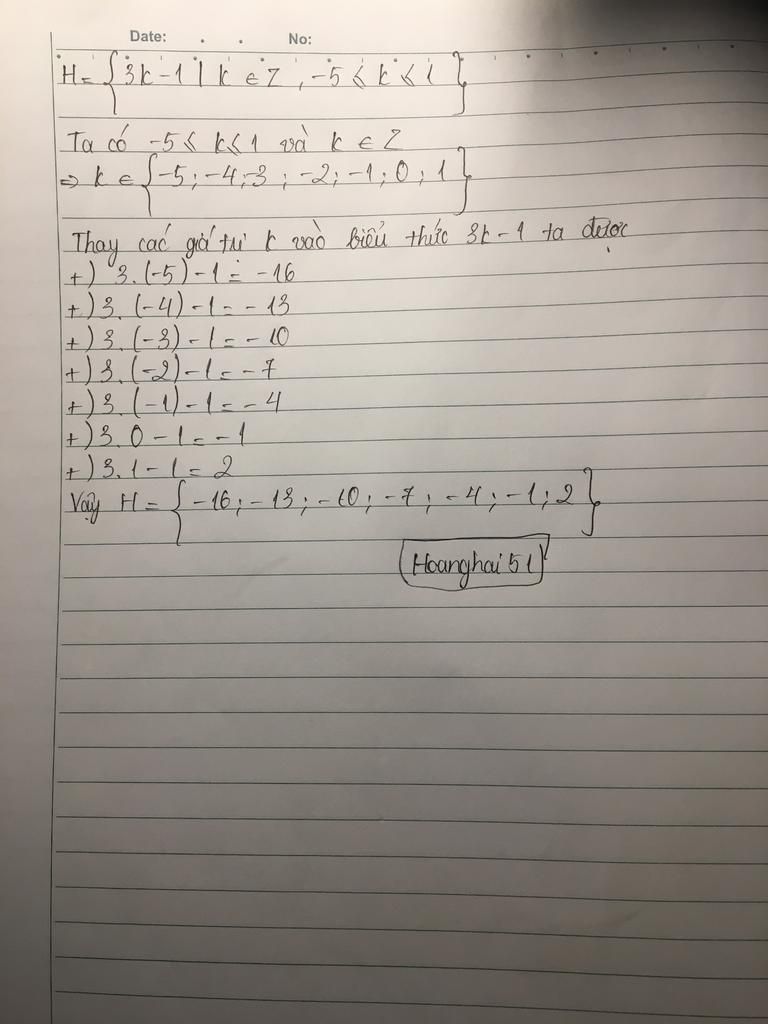 Date: . . No:
H = {3k - 1 | k ∈ Z, -5 ⩽ k ⩽ 1}
Ta có -5 ⩽ k ⩽ 1 và k ∈ Z
=> k ∈ {-5; -4; -3; -2; -1; 0; 1}
Thay các giá trị k vào biểu thức 3k - 1 ta được
+) 3. (-5) - 1 = -16
+) 3. (-4) - 1 = - 13
+) 3. (-3) - 1 = - 10
+) 3. (-2) - 1 = - 7
+) 3. (-1) - 1 = - 4
+) 3. 0 - 1 = - 1
+) 3. 1 - 1 = 2
Vậy H = {-16; -13; -10; -7; -4; -1; 2}
Hoanghai51